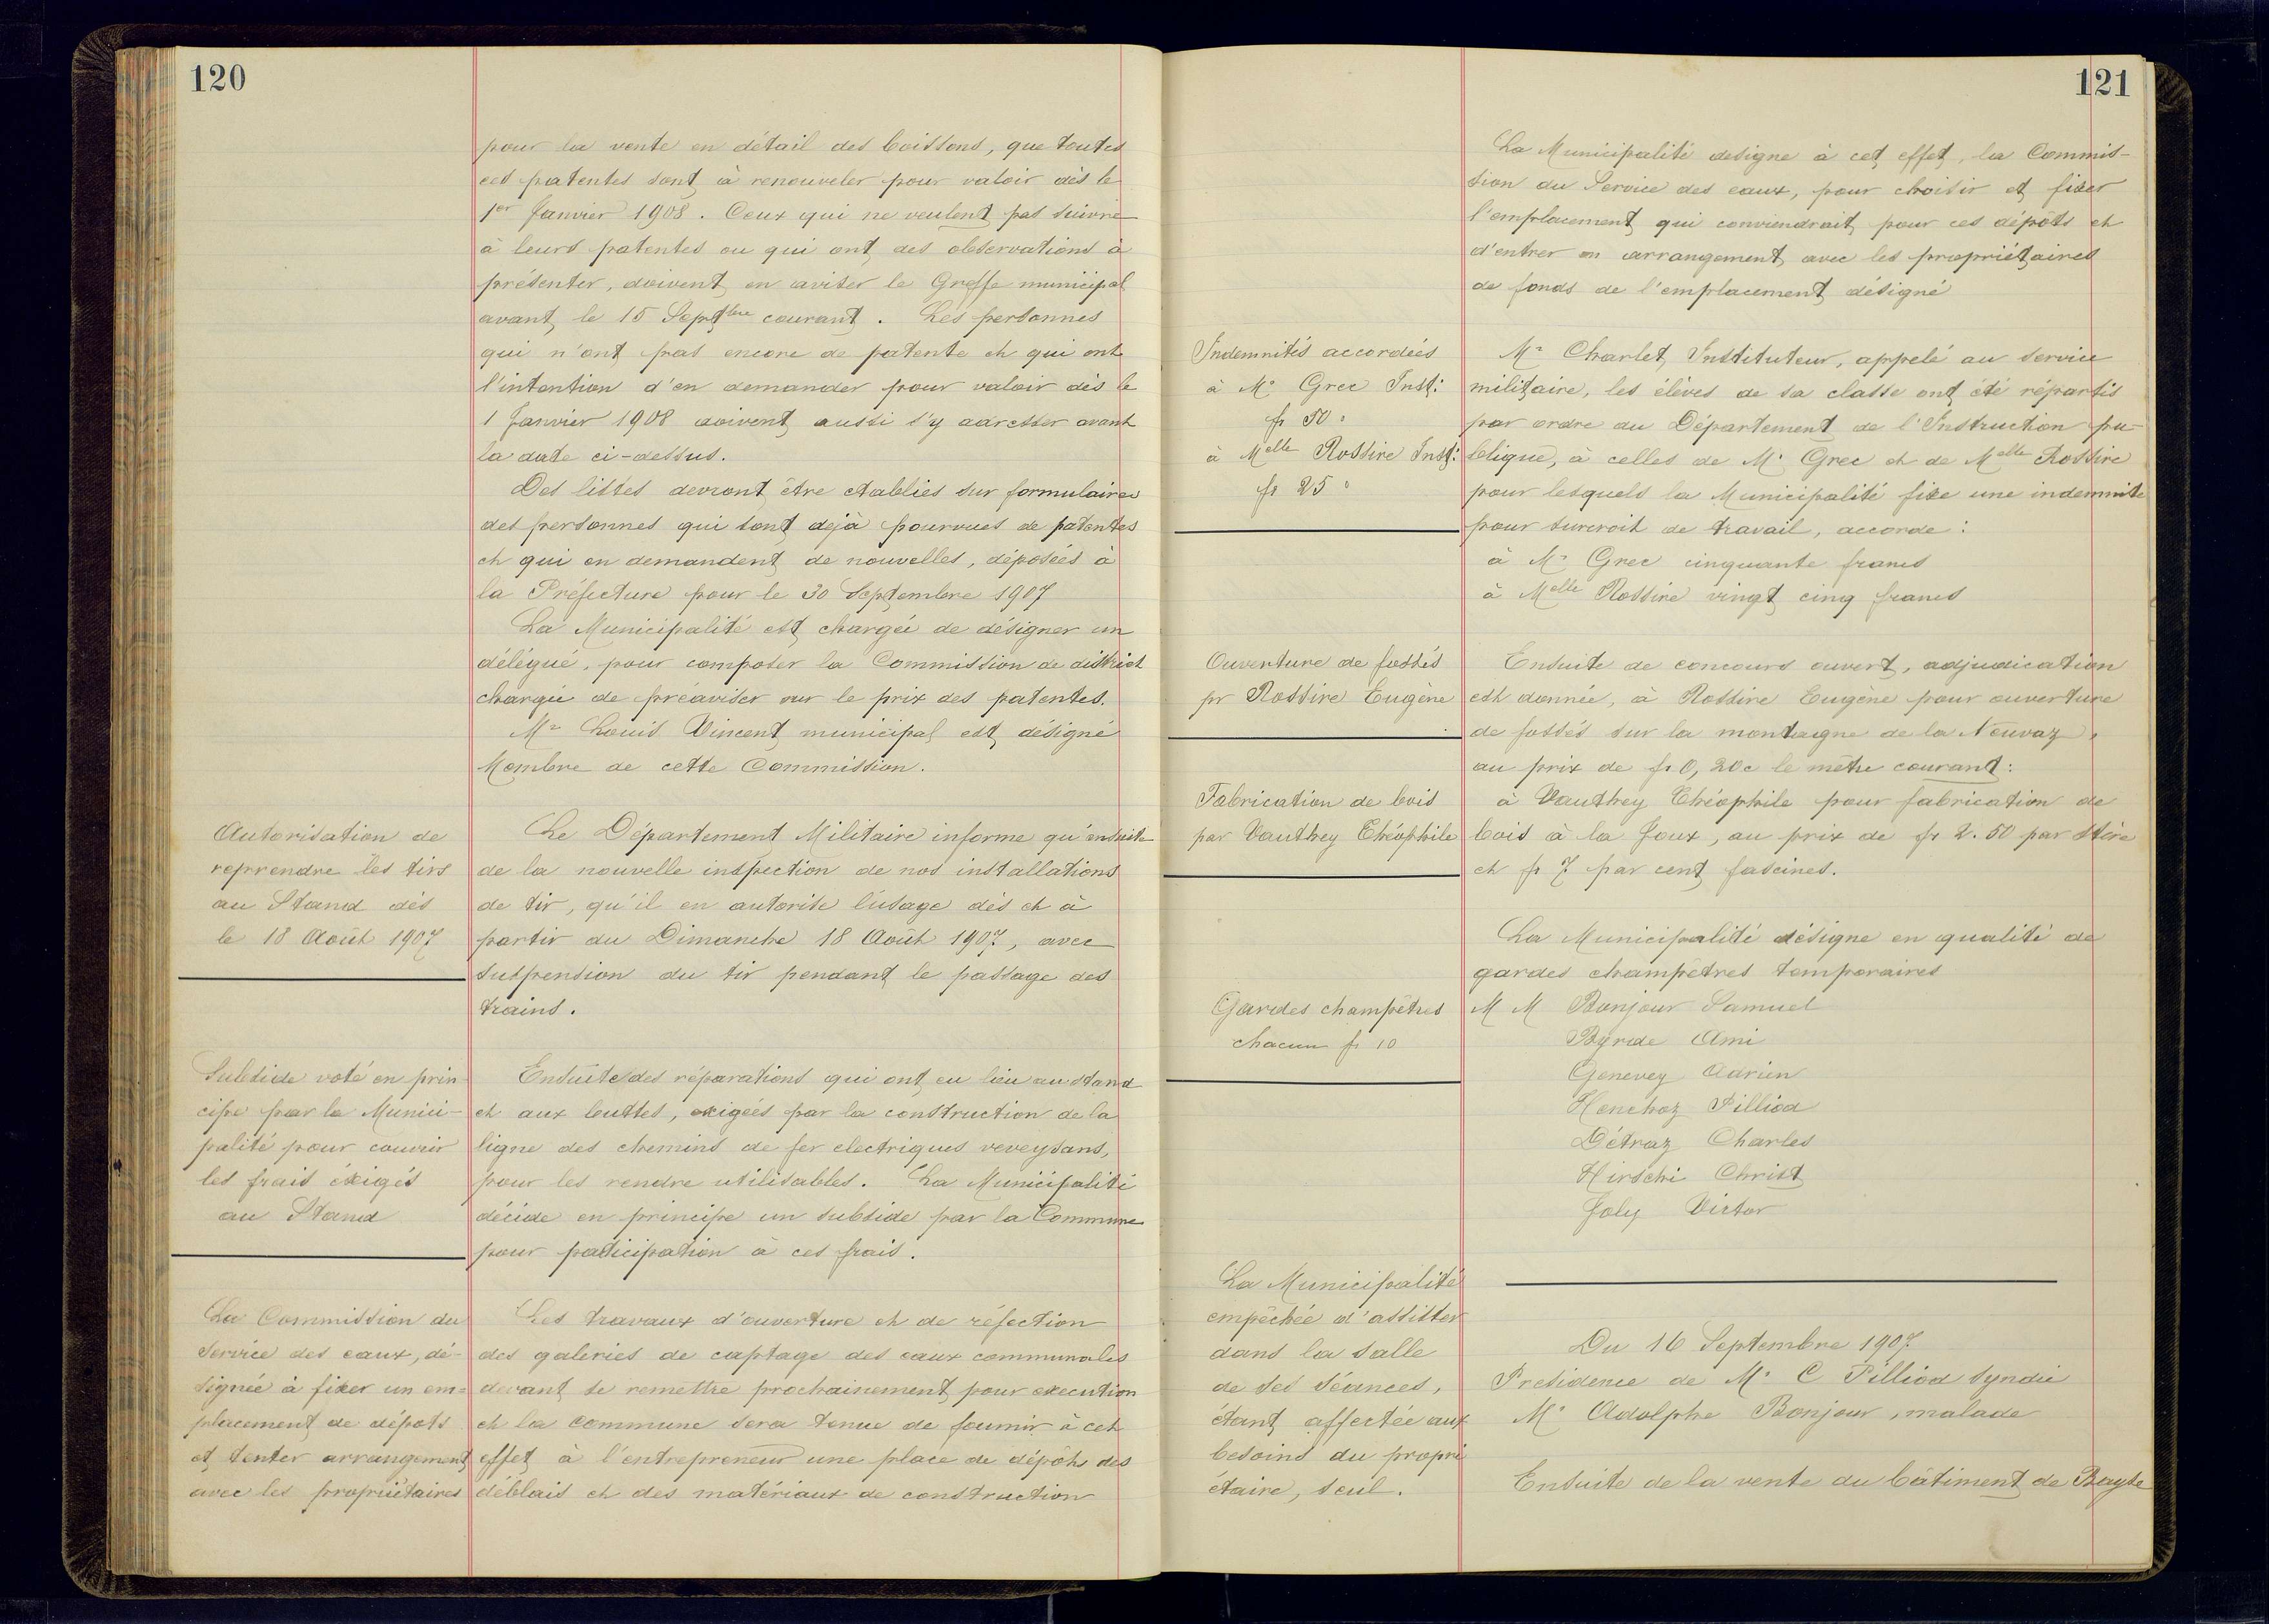 120
pour la vente en détail des boissons, que toutes
ces patentes sont à renouveler pour valoir dès le
1er Janvier 1908. Ceux qui ne veulent pas suivre
à leurs patentes ou qui ont des observations à
présenter, doivent en aviser le Greffe municipal
avant le 15 Septbre courant. Les personnes
qui n'ont pas encore de patente et qui ont
l'intention d'en demander pour valoir dès le
1 Janvier 1908 doivent aussi s'y adresser avant
la date ci-dessus.
Des listes devront être établies sur formulaires
des personnes qui sont déjà pourvues de patentes
et qui en demandent de nouvelles, déposées à
la Préfecture pour le 30 Septembre 1907
La Municipalité est chargée de désigner un
délégué, pour composer la Commission de district
chargée de préaviser sur le prix des patentes.
Mr Louis Vincent municipal est désigné
Membre de cette Commission.
Autorisation de
reprendre les tirs
au Stand dès
le 18 Août 1907
Le Département Militaire informe qu'ensuite
de la nouvelle inspection de nos installations
de tir, qu'il en autorise l'usage dès et à
partir du Dimanche 18 Août 1907, avec
suspension du tir pendant le passage des
trains.
Subside voté en prin
cipe par la Munici-
palité pour couvrir
les frais éxigés
au Stand
Ensuite des réparations qui ont eu lieu au stand
et aux buttes, exigées par la construction de la
ligne des chemins de fer electriques veveysans,
pour les rendre utilisables. La Municipalité
décide en principe un subside par la Commune
pour participation à ces frais.
La Commission du
Service des eaux, dé-
signée à fixer un em-
placement de dépots
et tenter arrangement
avec les propriétaires
Les travaux d'ouverture et de réfection
des galeries de captage des eaux communales
devant se remettre prochainement pour execution
et la commune sera tenue de fournir à cet
effet à l'entrepreneur une place de dépôts des
déblais et des matériaux de construction
121
La Municipalité designe à cet effet, la Commis-
sion du Service des eaux, pour choisir et fixer
l'emplacement qui conviendrait pour ces dépôts et
d'entrer en arrangement avec les propriétaires
de fonds de l'emplacement désigné
Indemnités accordées
à Mr Grec Inst:
fr 50 "
à Melle Rossire Inst:
fr 25 "
Mr Charlet, Instituteur, appelé au service
militaire, les élèves de sa classe ont été répartis
par ordre du Département de l'Instruction pu-
blique, à celles de Mr Grec et de Melle Rossire
pour lesquels la Municipalité fixe une indemnité
pour surcroit de travail, accorde :
à Mr Grec cinquante francs
à Melle Rossire vingt cinq francs
Ouverture de fossés
pr Rossire Eugène
Ensuite de concours ouvert, adjudication
est donnée, à Rossire Eugène pour ouverture
de fossés sur la montagne de la Neuvaz,
au prix de fr 0,20c le mètre courant:
Fabrication de bois
par Vauthey Théophile
à Vauthey Théophile pour fabrication de
bois à la Joux, au prix de fr 2.50 par stère
et fr 7 par cent fascines.
La Municipalité désigne en qualité de
gardes champêtres temporaires
Gardes champêtres
chacun fr 10
M M Bonjour Samuel
Byrde Ami
Genevey Adrien
Henchoz Pilliod
Détraz Charles
Hirschi Christ
Joly Victor
La Municipalité
empêchée d'assister
dans la salle
de ses séances,
étant affectée aux
besoins du propri
étaire, seul.
Du 16 Septembre 1907
Presidence de Mr C Pilliod syndic
Mr Adolphe Bonjour, malade
Ensuite de la vente du bâtiment de